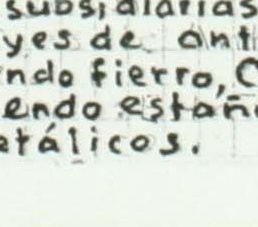 subsidiarias
yes de ant
ndo fierro, C
endo estañ
etálicos.